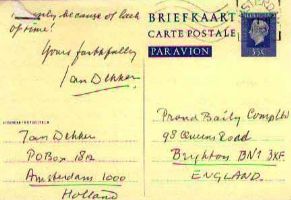 only because of lack
of time!
Yours faithfully
Jan Dekker
Jan Dekker
PO Box 1812
Amsterdam 1000
Holland
BRIEFKAART
CARTE POSTALE
PAR AVION
55c
Proud Baily Compltd
98 Queens Road
Bryhton BN1 3XF.
ENGLAND.